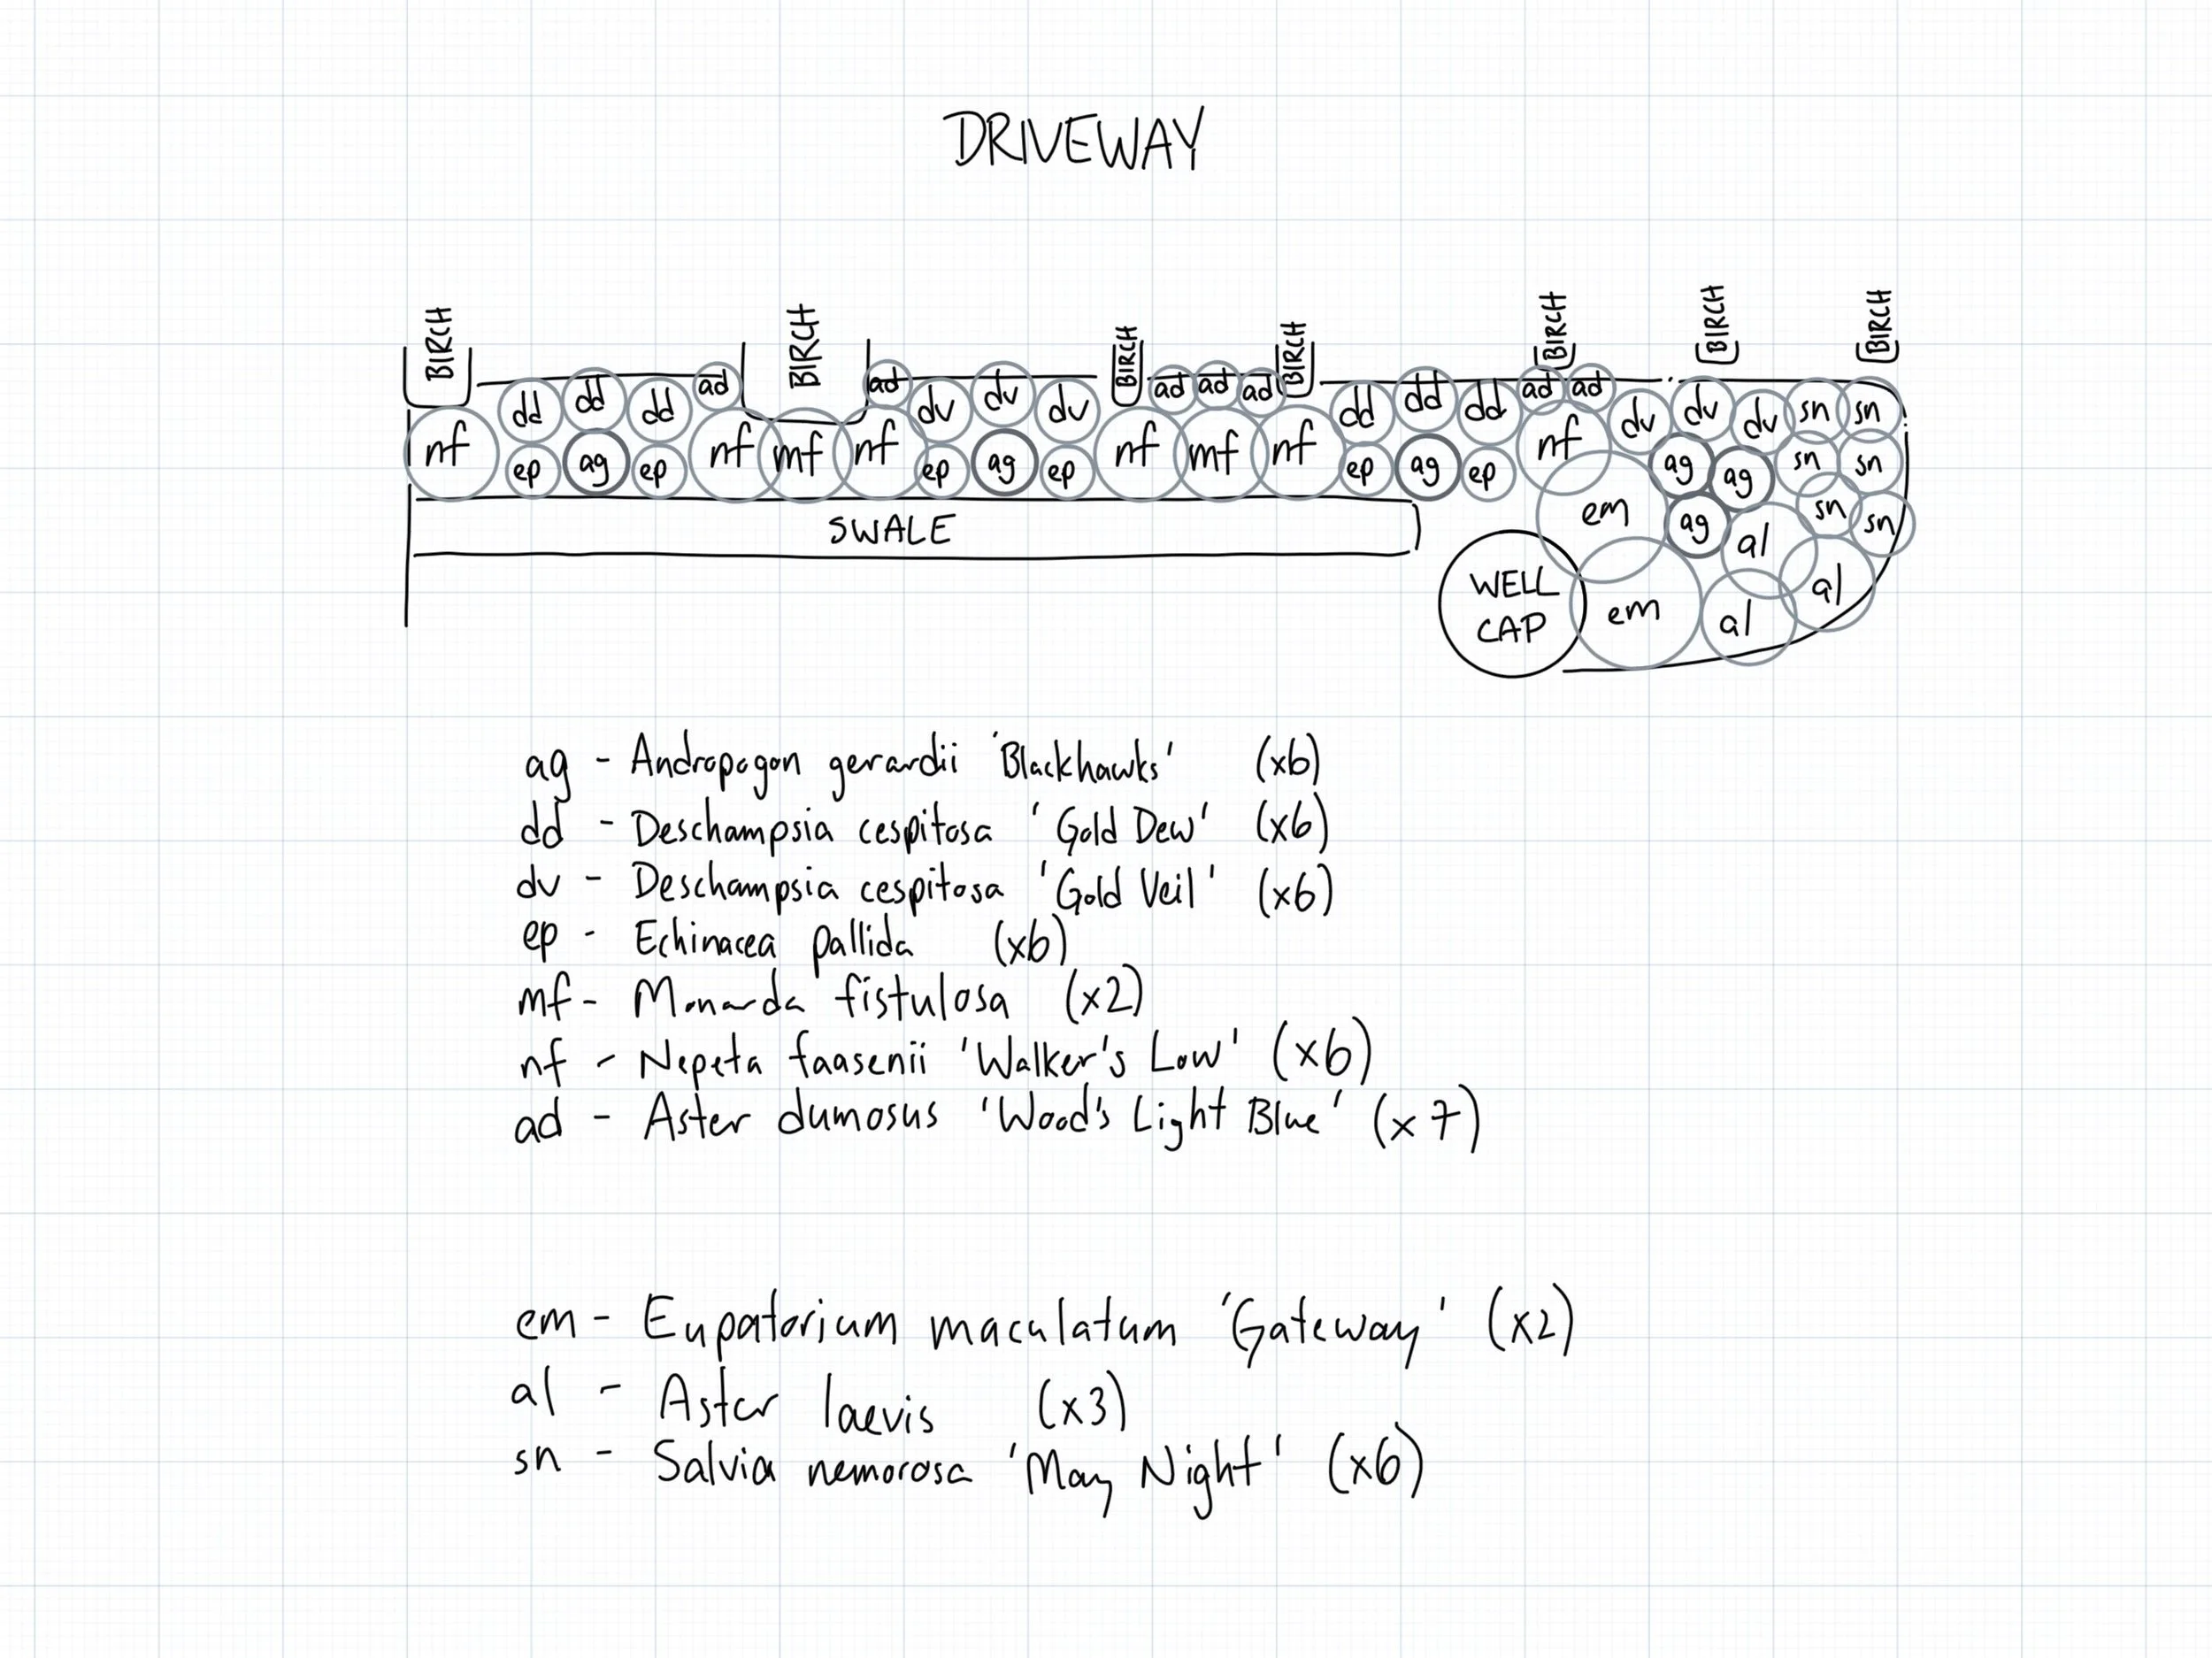 DRIVEWAY
BIRCH BIRCH BIRCH BIRCH BIRCH BIRCH BIRCH
dd dd dd ad ad dv dv dv ad ad ad dd dd dd ad ad dv dv dv sn sn
nf ep ag ep nf mf nf ep ag ep nf mf nf ep ag ep nf ag ag sn sn
em ag al sn sn
SWALE
WELL
CAP
em al al
ag - Andropogon gerardii 'Blackhawks' (x6)
dd - Deschampsia cespitosa 'Gold Dew' (x6)
dv - Deschampsia cespitosa 'Gold Veil' (x6)
ep - Echinacea pallida (x6)
mf - Monarda fistulosa (x2)
nf - Nepeta faasenii 'Walker's Low' (x6)
ad - Aster dumosus 'Wood's Light Blue' (x7)
em - Eupatorium maculatum 'Gateway' (x2)
al - Aster laevis (x3)
sn - Salvia nemorosa 'May Night' (x6)